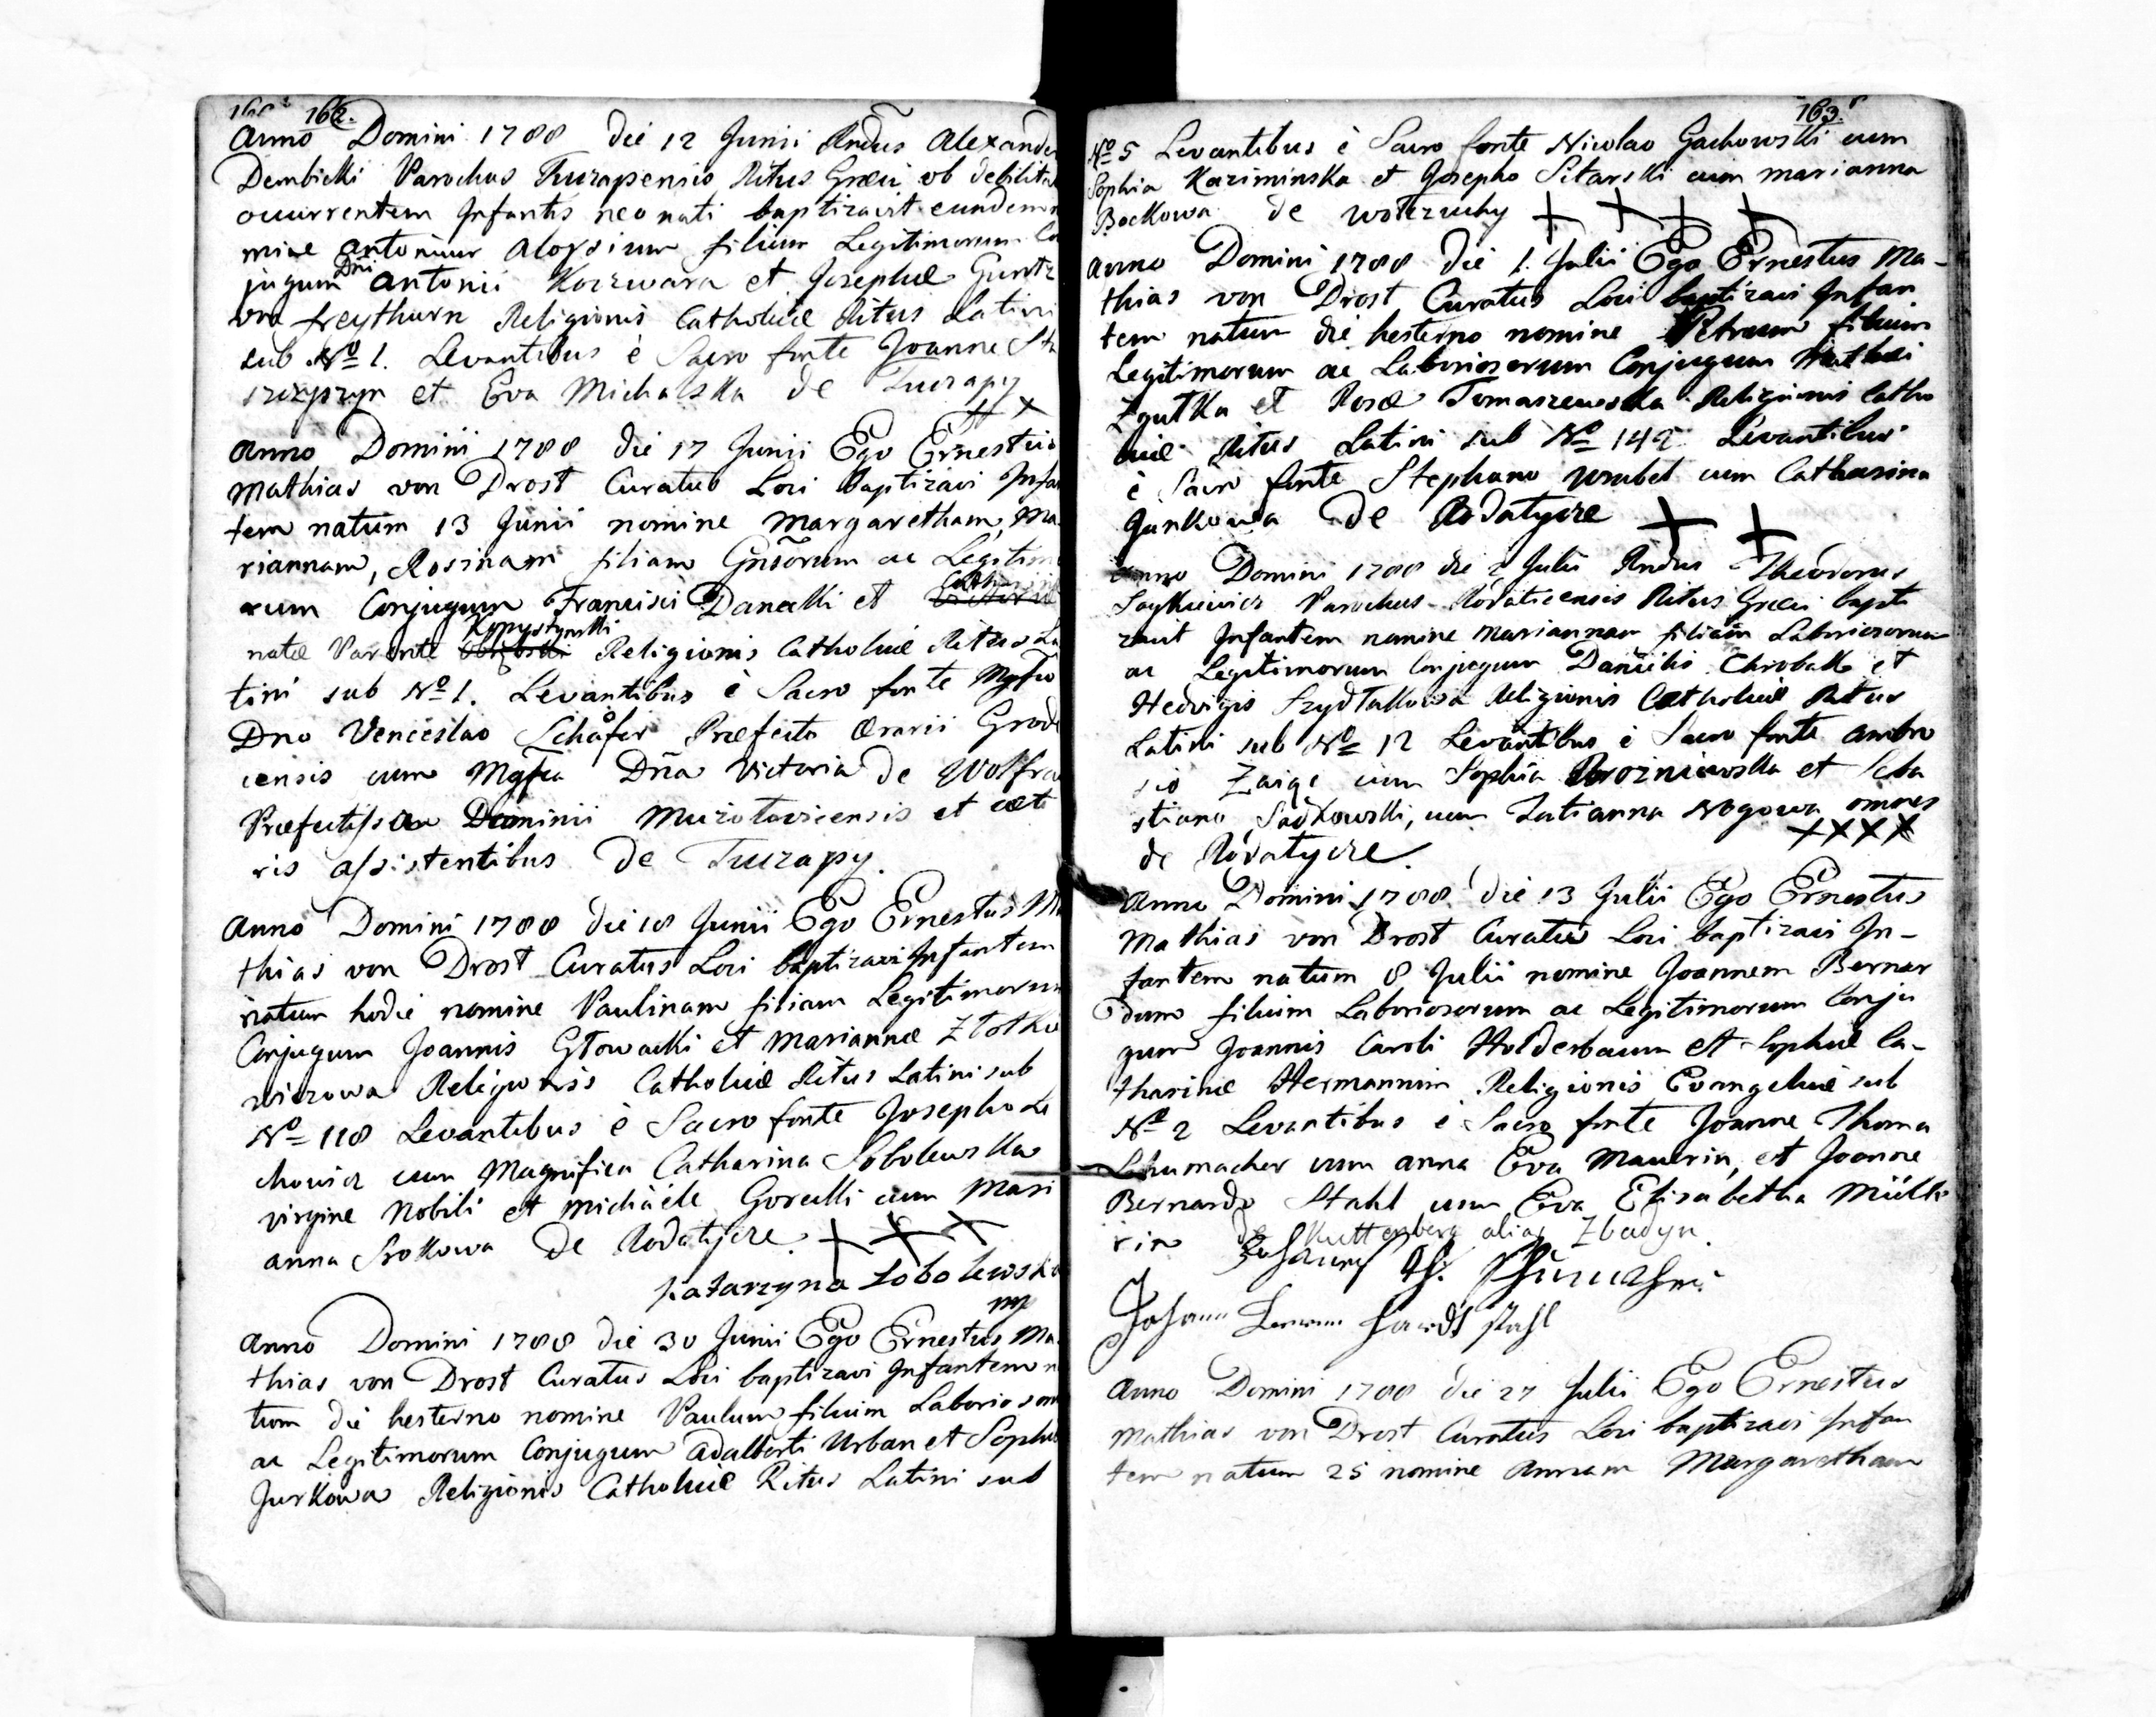 162.
Anno Domini 1788 die 12 Junii Rndus Alexander
Dembicki Parochus Turzapensis Ritus Graeci ob debilita
occurrentem Infantis neo nati baptizavit eundem n
mine Antonium Aloysium filium Legitimorum Co
jugum Dni Antonii Kozwara et Josephae Guntz
von freythurn Religionis Catholicae Ritus Latini
sub No 1. Levantibus è Sacro fonte Joanne
et Eva Michalska de Turzapy
Anno Domini 1788 die 17 Junii Ego Ernestus
Mathias von Drost Curatus Loci Baptizavi Infan
tem natum 13 Junii nomine Margaretham, Ma
riannam, Rosinam filiam Gnsorum ac Legitim
rum Conjugum Francisci Danecki et
natae Parente Kopystynski Religionis Catholicae Ritus La
tini sub No 1. Levantibus è Sacro fonte Mgfco
Dno Venceslao Schäfer Praefecto Aerarii Grod
censis cum Mgfca Dna Victoria de Wolfra
Praefectissa Dominii Muzytovicensis et caete
ris assistentibus de Turzapy.
Anno Domini 1788 die 18 Junii Ego Ernestus Ma
thias von Drost Curatus Loci baptizavi Infantem
natum hodie nomine Paulinam filiam Legitimorum
Conjugum Joannis Głowacki et Mariannae Złotkie
wiczowa Religionis Catholicae Ritus Latini sub
No 118 Levantibus è Sacro fonte Josepho Le
chowicz cum Magnifica Catharina Sobolewska
virgine Nobili et Michaele Gorecki cum Mari
anna Srokowa de Rodatycze. + + +
Katarzyna Sobolewska
mp
Anno Domini 1788 die 30 Junii Ego Ernestus Ma
thias von Drost Curatus Loci baptizavi Infantem n
tum die hesterno nomine Paulum filium Laborioson
ac Legitimorum Conjugum Adalberti Urban et Sophia
Jurkowa Religionis Catholicae Ritus Latini sub
163.
No 5 Levantibus è Sacro fonte Nicolao Gachowski cum
Sophia Kaziminska et Josepho Sitarski cum Marianna
Bockowa de Wołczuchy + + + +
Anno Domini 1788 die 1. Julii Ego Ernestus Ma-
thias von Drost Curatus Loci baptizavi Infan
tem natum die hesterno nomine Petrum filium
Legitimorum ac Laboriosorum Conjugum Mathei
Zgutka et Rosae Tomaszewska Religionis Catho
licae Ritus Latini sub No 142 Levantibus
è Sacro fonte Stephano Wrubel cum Catharina
Junkowa de Rodatycze + +
Anno Domini 1788 die 2 Julii Rndus Theodorus
Saykiewicz Parochus Rodaticensis Ritus Graeci bapti
zavit Infantem nomine Mariannam filiam Laboriosorum
ac Legitimorum Conjugum Danielis Chrobak et
Hedvigis Szydłakowa Religionis Catholicae Ritus
Latini sub No 12 Levantibus è Sacro fonte Ambro
sio Zaige cum Sophia Woźniewska et Seba
stiano Sadkowski, cum Tatianna Nogowa omnes
de Rodatycze. ++++
Anno Domini 1788 die 13 Julii Ego Ernestus
Mathias von Drost Curatus Loci baptizavi In-
fantem natum 8 Julii nomine Joannem Bernar
dum filium Laboriosorum ac Legitimorum Conju
gum Joannis Caroli Holderbaum et Sophiae Ca-
tharinae Hermannin Religionis Evangelicae sub
No 2 Levantibus è Sacro fonte Joanne Thoma
Schumacher cum Anna Eva Maurin, et Joanne
Bernardo Stahl cum Eva Elisabetha Mülle
rin de Kuttenberg alias Zbadyn.
Johann Th. Schumacher
Johann stahl
Anno Domini 1788 die 27 Julii Ego Ernestus
Mathias von Drost Curatus Loci baptizavi Infan
tem natum 25 nomine Annam Margaretham